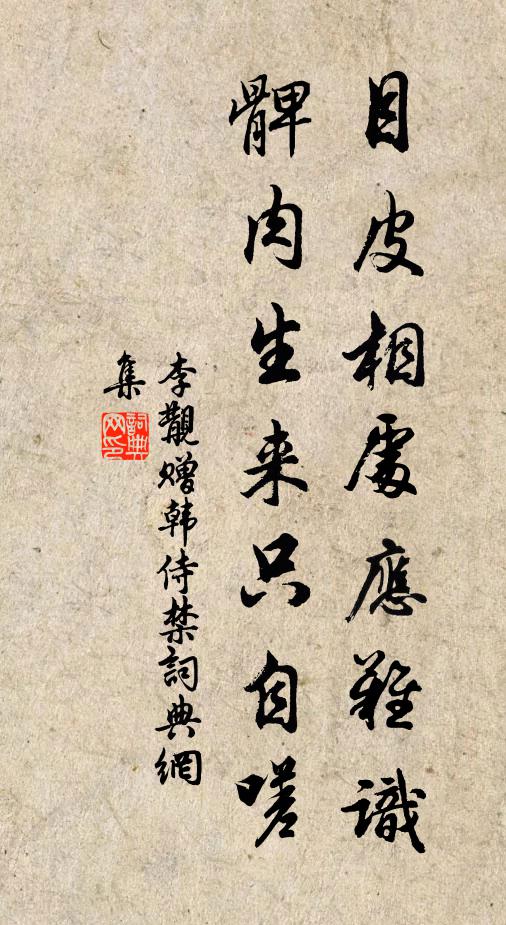 目皮相處應難識
髀肉生来只自嗟
李觀赠韩侍禁詞典網
集
詞典
网印